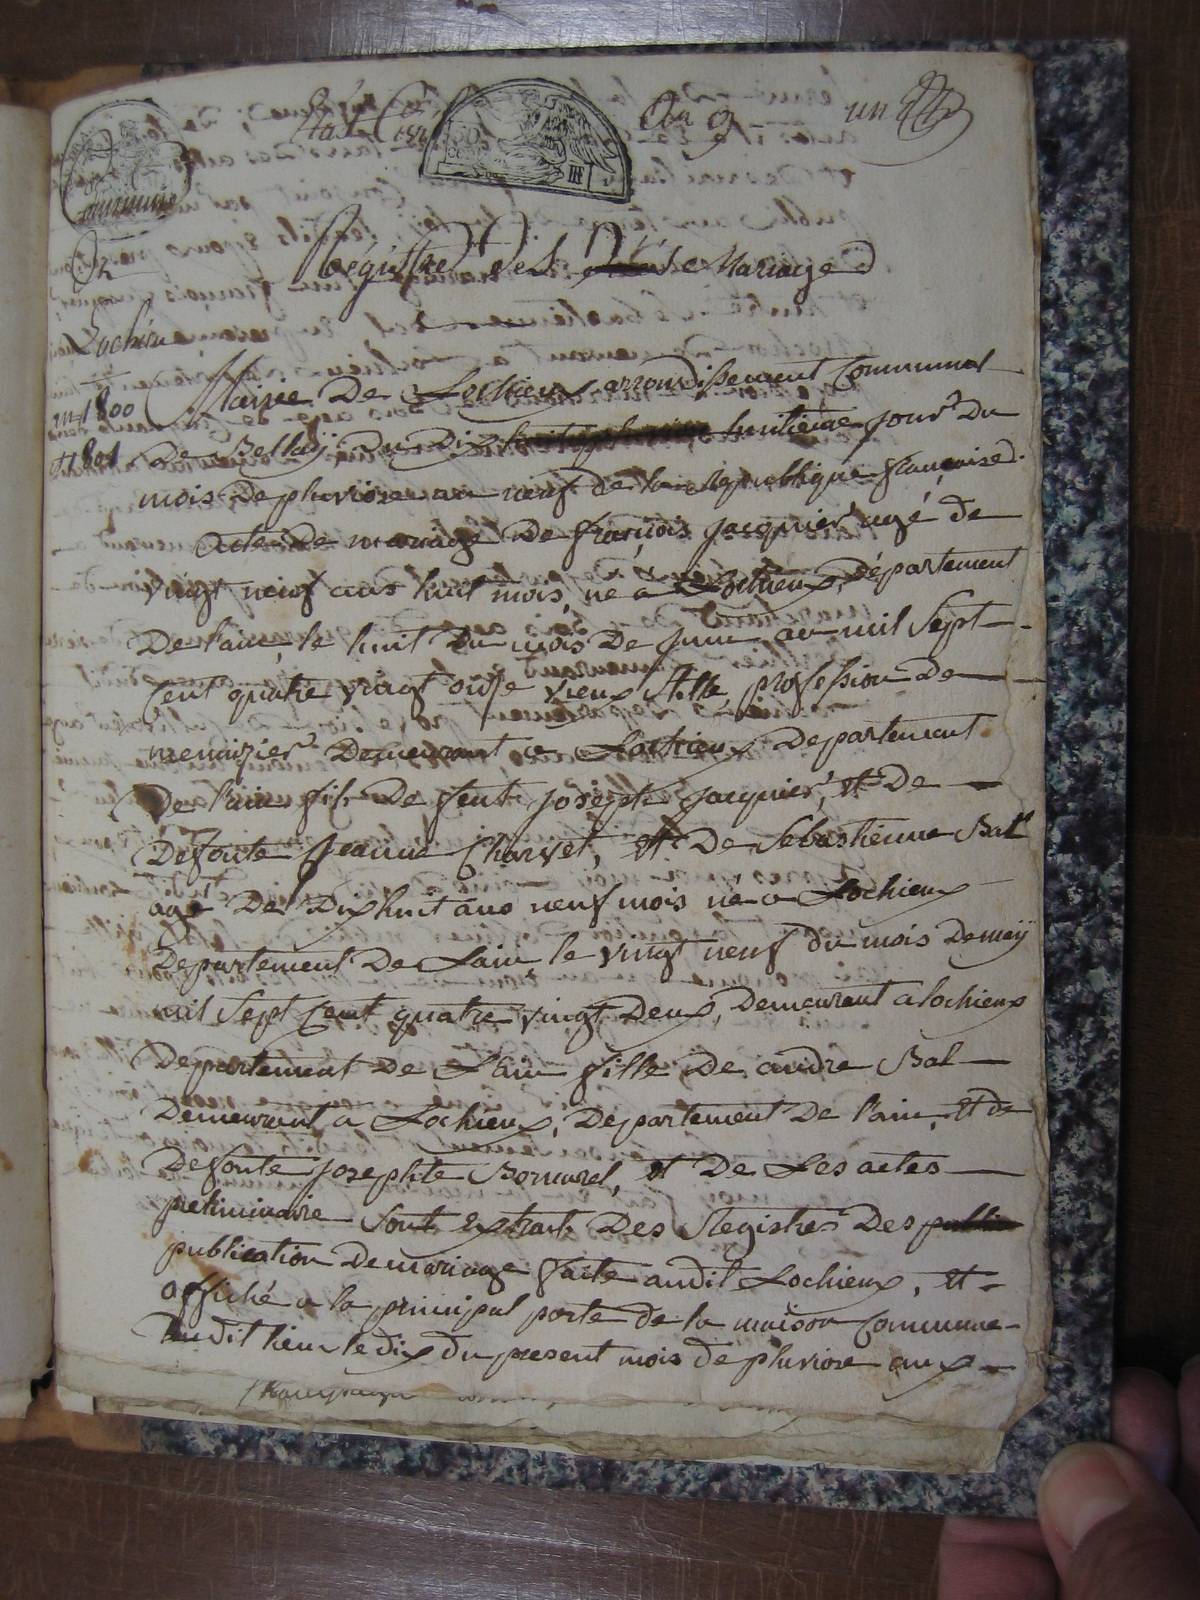 Etat Civil
an 9
un
Commune
De
Lochieu
Registre des Mariage
an 1800
et 1801
Mairie De Lochieux arrondissement Communal
De Bellay Du Dix huitième jour Du
mois De pluviose an neuf de la Republique françaised.
Acte De mariage De françois jacquier agé de
vingt neuf ans huit mois, ne a Lochieux, Département
De l'ain, le huit Du mois De juin an mil Sept
Cent quatre vingt onze vieux Stille, profession De
menuizier Demeurant a Lochieux Departement
De l'ain fils De feut joseph jacquier, et De
Defoute jeanne Charvet, et De Sebastienne Bal
agé De Dixhuit ans neuf mois ne a Lochieux
Departement De Lain, le vingt neuf du mois De mey
mil Sept Cent quatre vingt Deux, Demeurant a lochieux
Departement De Lain fille De andre Bal
Demeurant a Lochieux, Departement De l'ain, et de
Defoute josephte Bonnard, et De Les actes
preliminaire Sont Extraits Des Registres Des
publication De mariage faite audit Lochieux, et
affiché a la principal porte de la maison Commune
Dudit lieu le dix du present mois de pluviose aux